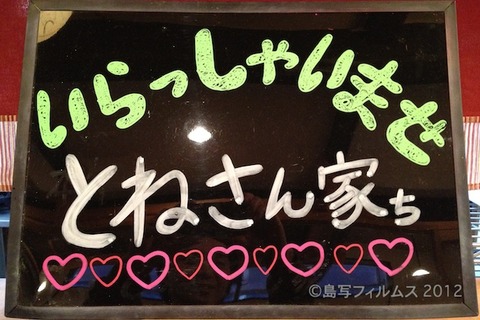 いらっしゃいませ
とねさん家ち
©島写フィルムス 2012